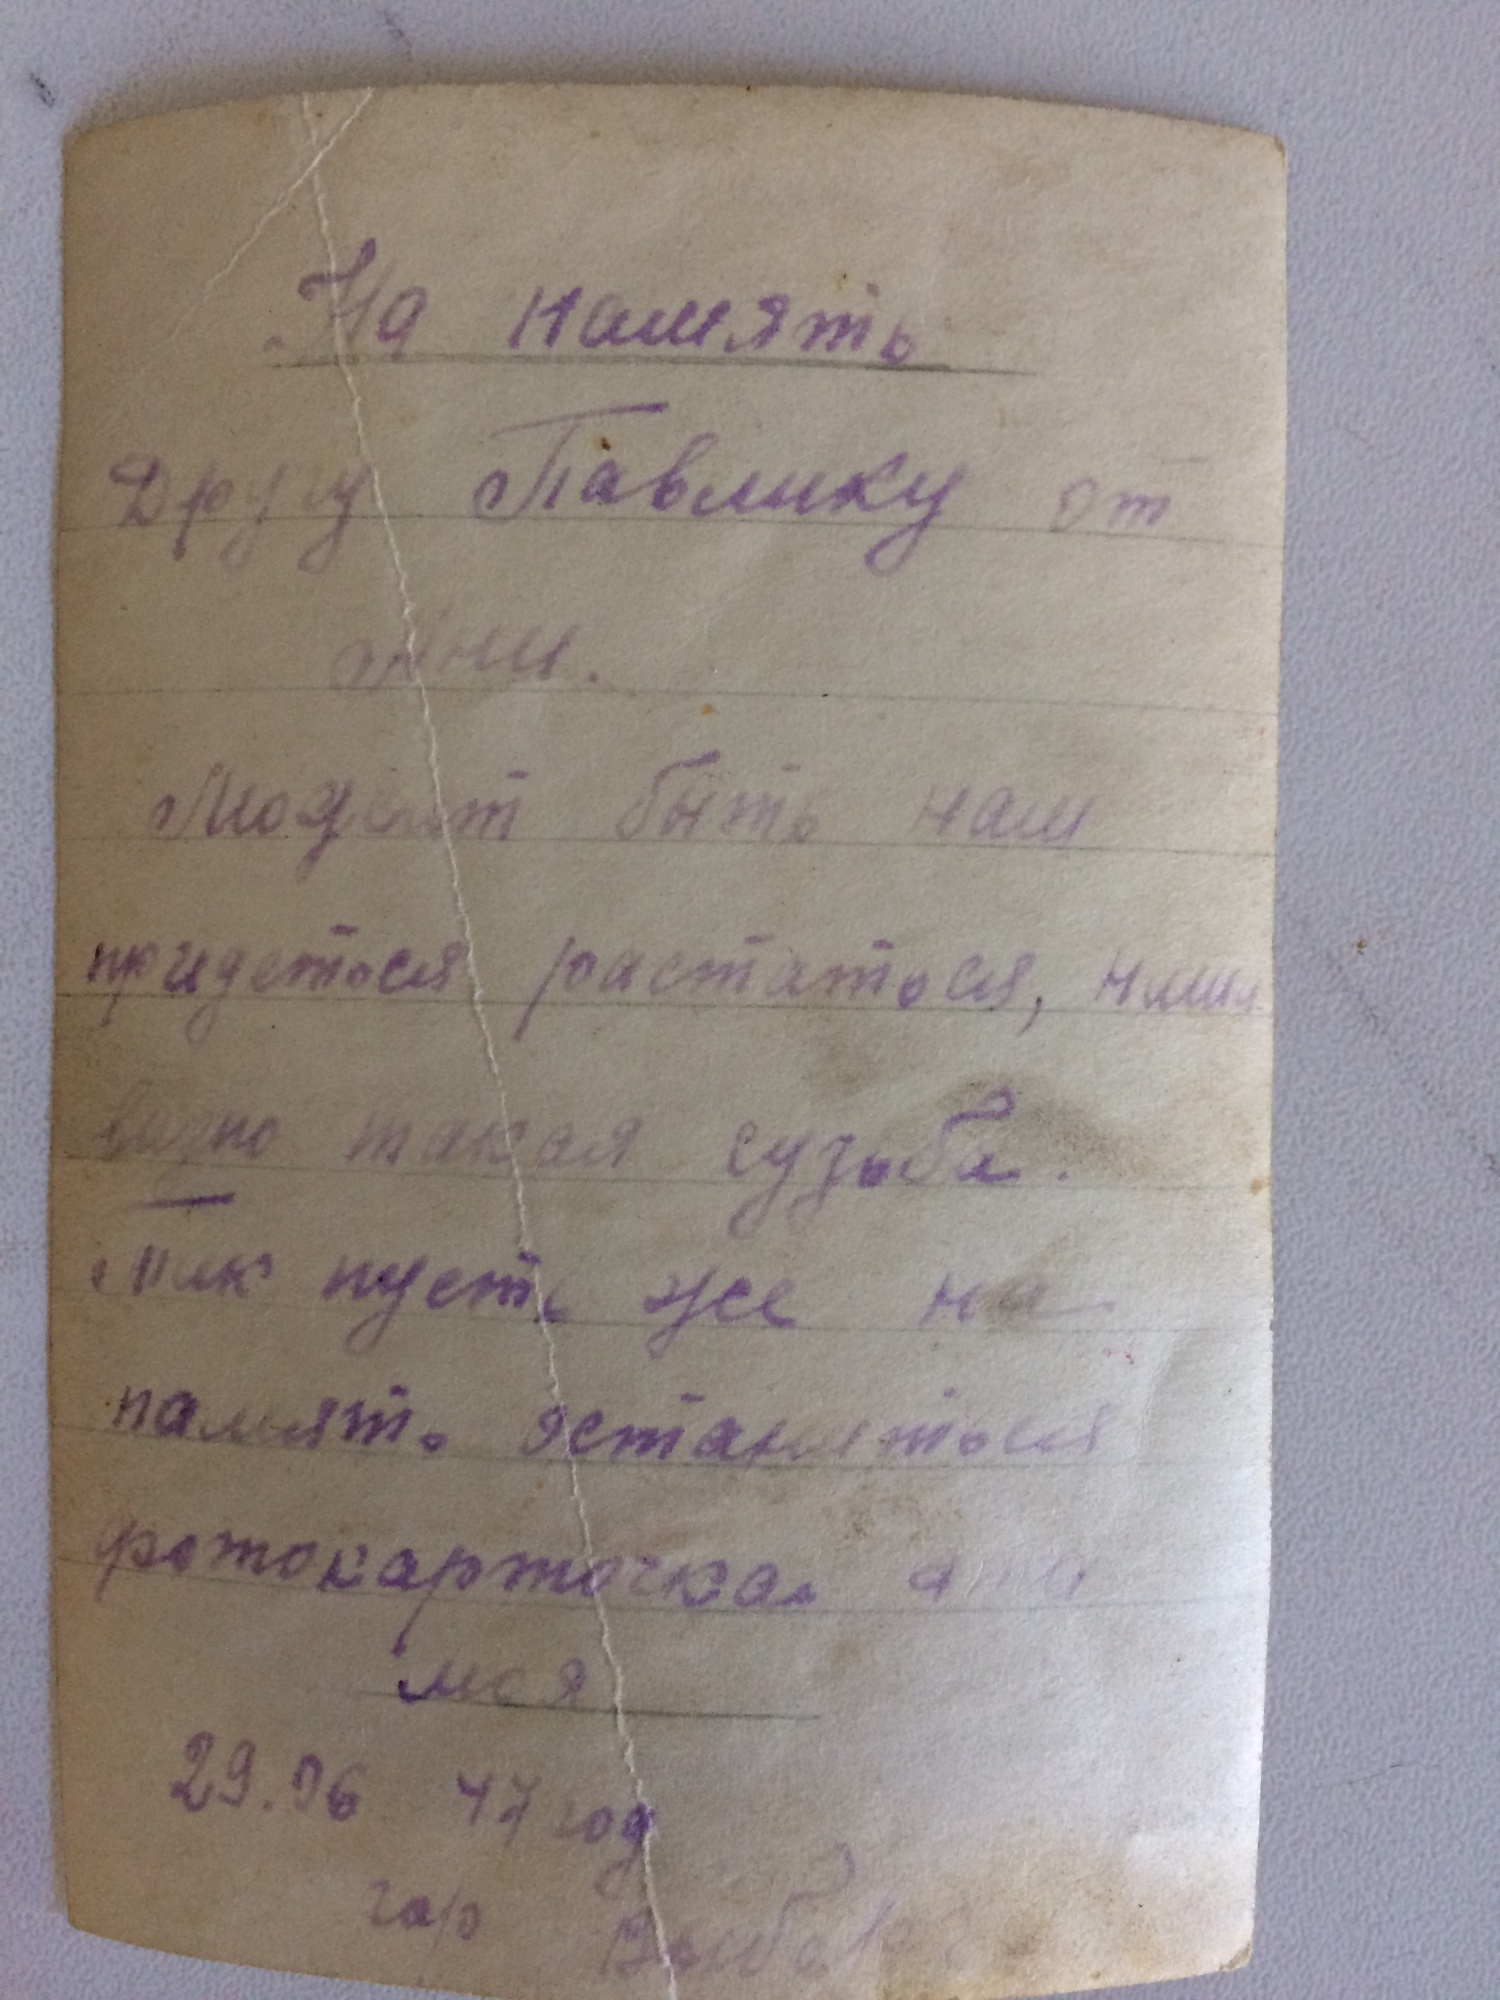 На память
Другу Павлику от
Жени.
Может быть нам
придеться растаться,
видно такая судьба.
Так пусть же на
память останеться
фотокарточка
моя
29.06 47 год
гор Выборг